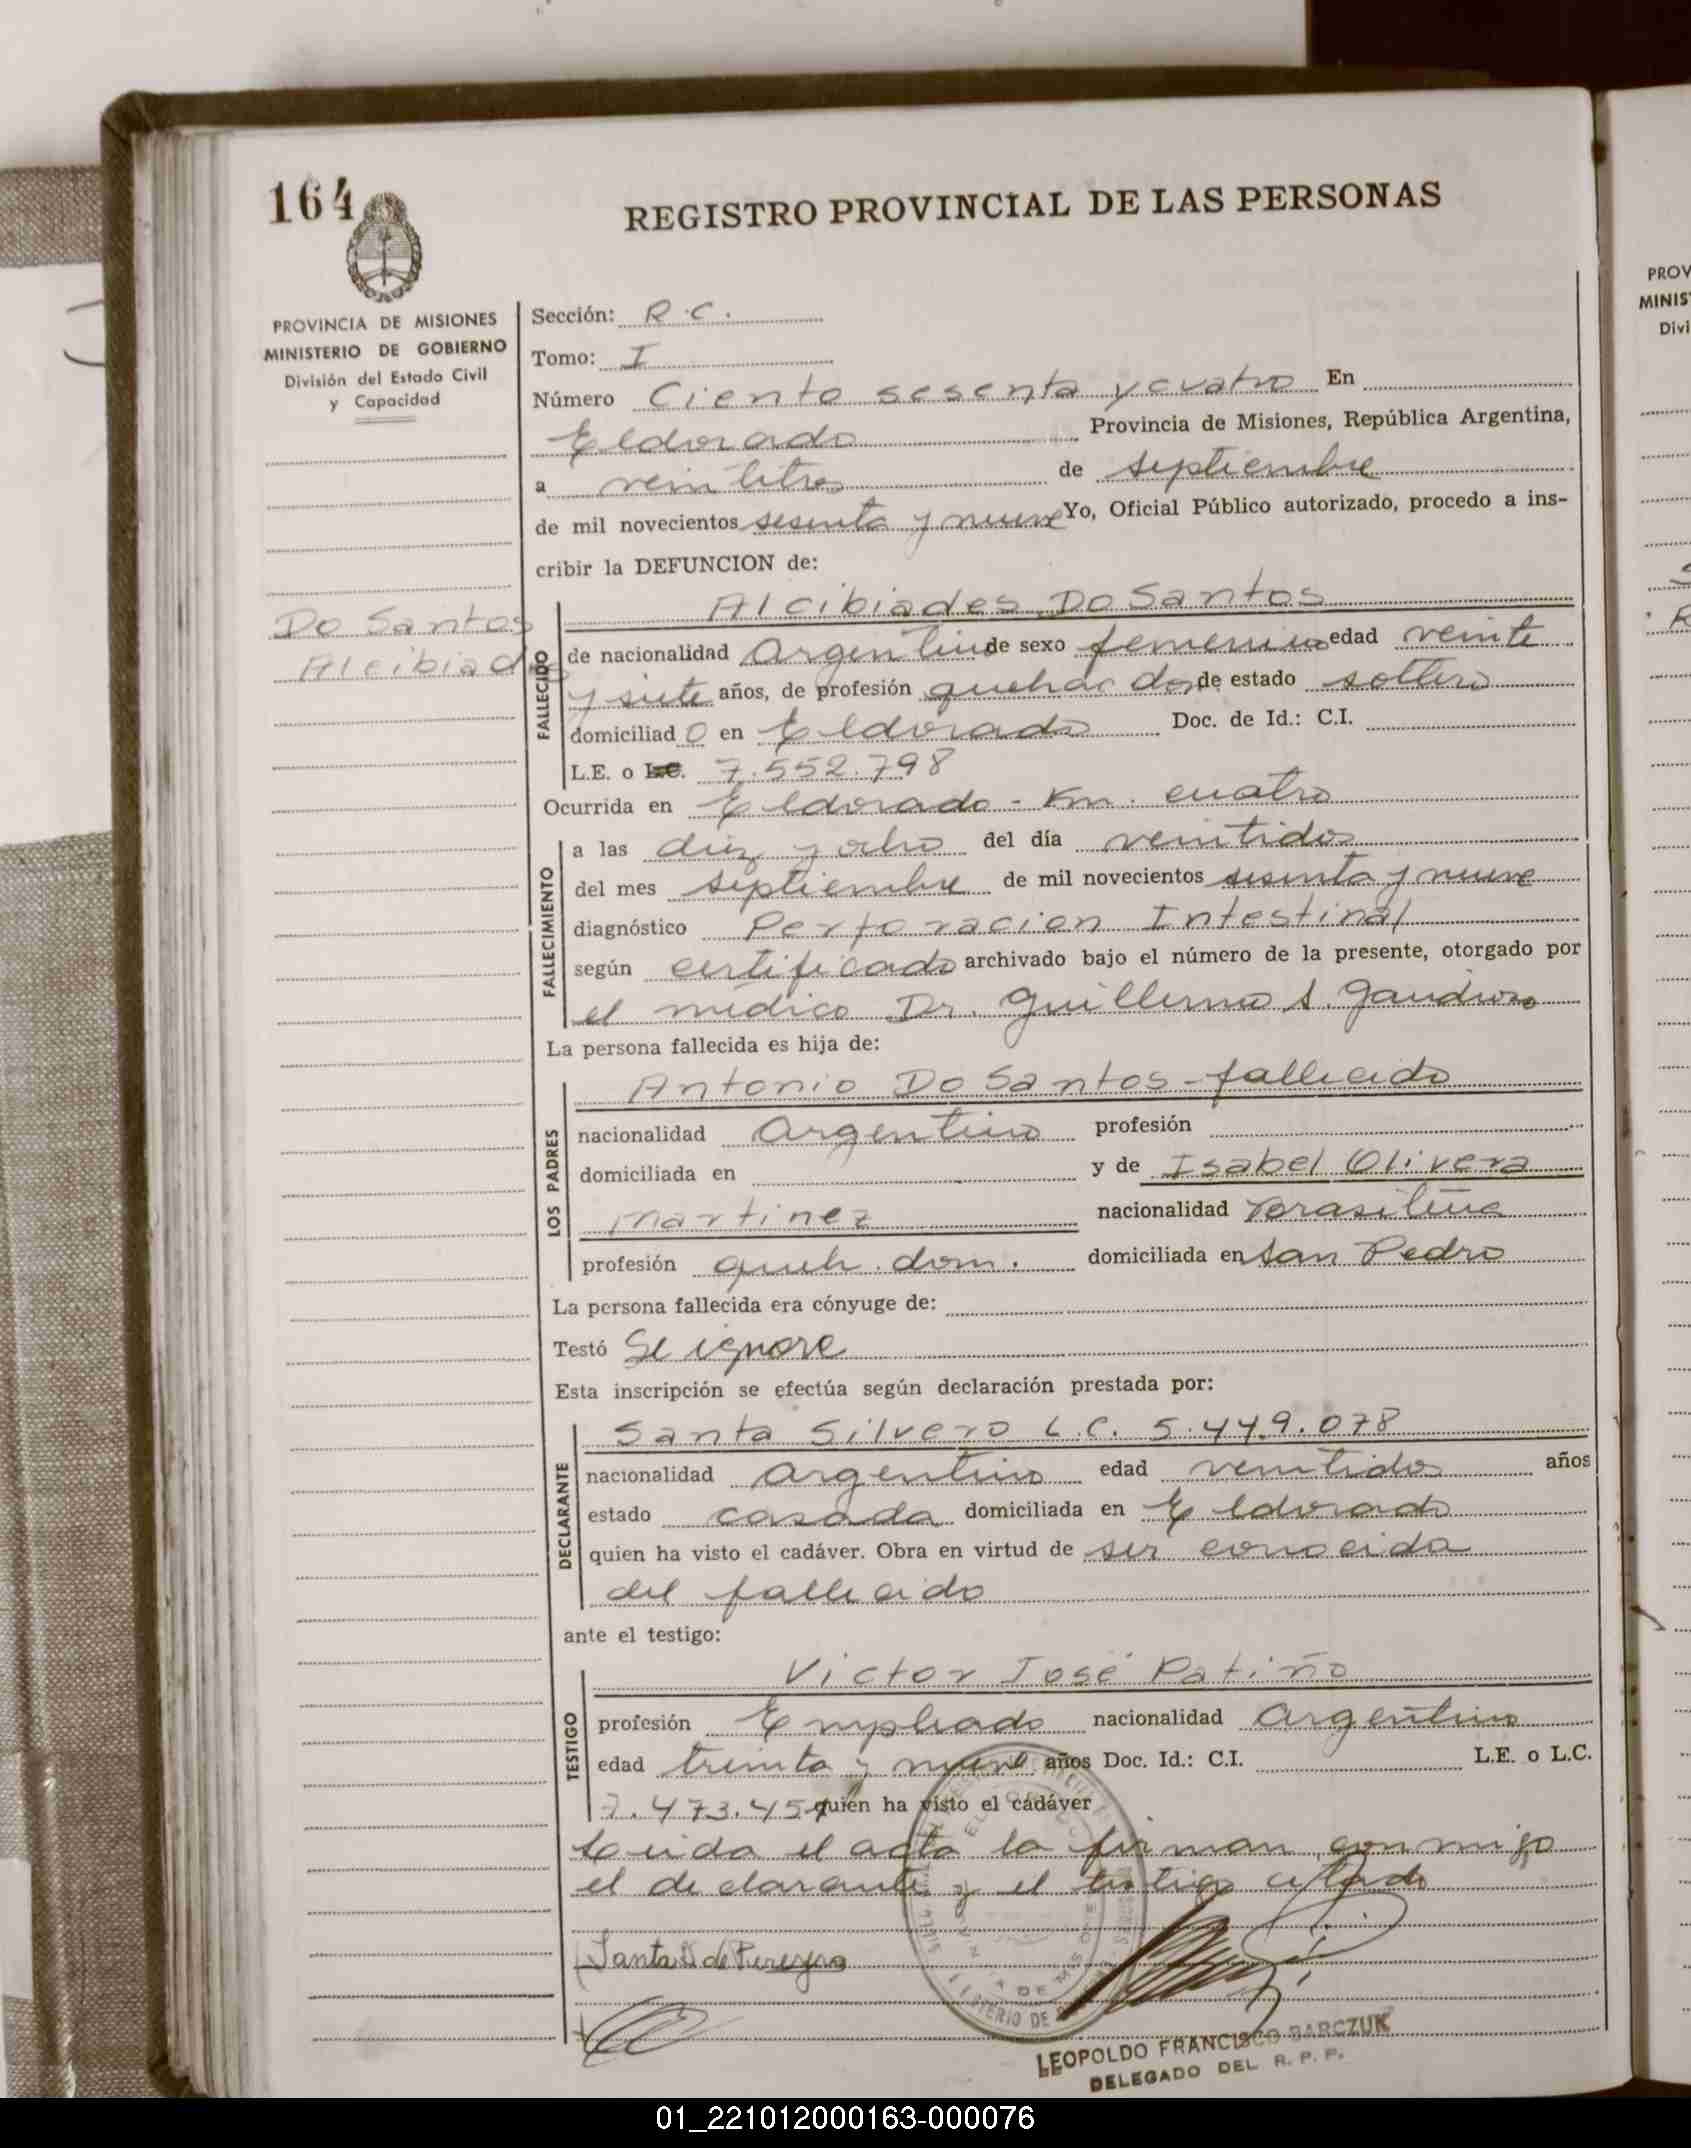 164
REGISTRO PROVINCIAL DE LAS PERSONAS
PROVINCIA DE MISIONES
MINISTERIO DE GOBIERNO
División del Estado Civil
y Capacidad
Sección: R.C.
Tomo: I
Número Ciento sesenta y cuatro En
Eldorado Provincia de Misiones, República Argentina,
a veintitres de septiembre
de mil novecientos sesenta y nueve Yo, Oficial Público autorizado, procedo a ins-
cribir la DEFUNCION de:
Do Santos
Alcibiades
FALLECIDO
Alcibiades Do Santos
de nacionalidad Argentino de sexo femenino edad veinte
y siete años, de profesión quehac dom de estado soltero
domiciliado en Eldorado Doc. de Id.: C.I.
L.E. o L.C. 7.552.798
Ocurrida en Eldorado - Km. cuatro
FALLECIMIENTO
a las diez y ocho del día veintidos
del mes septiembre de mil novecientos sesenta y nueve
diagnóstico Perforacion Intestinal
según certificado archivado bajo el número de la presente, otorgado por
el medico Dr. Guillermo S.
La persona fallecida es hija de:
LOS PADRES
Antonio Do Santos - fallecido
nacionalidad Argentino profesión
domiciliada en y de Isabel Olivera
Martinez nacionalidad brasileña
profesión queh. dom. domiciliada en San Pedro
La persona fallecida era cónyuge de:
Testó Se ignore
Esta inscripción se efectúa según declaración prestada por:
DECLARANTE
Santa Silvero L.C. 5.449.078
nacionalidad Argentino edad veintidos años
estado casada domiciliada en Eldorado
quien ha visto el cadáver. Obra en virtud de ser conocida
del fallecido
ante el testigo:
TESTIGO
Victor José Patiño
profesión Empleado nacionalidad Argentino
edad treinta y nueve años Doc. Id.: C.I. L.E. o L.C.
7.473.454 quien ha visto el cadáver
Leida el acta la firman conmigo
el declarante y el testigo citado
Santa S de Pereyra
LEOPOLDO FRANCISCO BARCZUK
DELEGADO DEL R. P. P.
PROV
MINIS
Divi
01_221012000163-000076